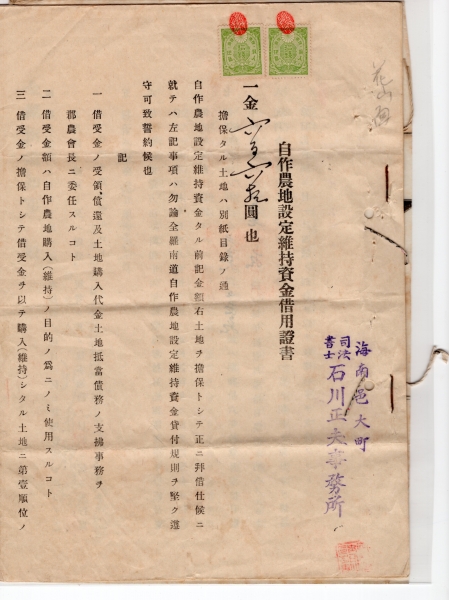 海南邑大町
司法書士 石川正夫事務所
自作農地設定維持資金借用證書
一金六百六拾圓也
擔保タル土地ハ別紙目錄ノ通
自作農地設定維持資金タル前記金額右土地ヲ擔保トシテ正ニ拜借仕候ニ
就テハ左記事項ハ勿論全羅南道自作農地設定維持資金貸付規則ヲ堅ク遵
守可致誓約候也
記
一 借受金ノ受領、償還及土地購入代金土地抵當債務ノ支拂事務ヲ
郡農會長ニ委任スルコト
二 借受金額ハ自作農地購入(維持)ノ目的ノ爲ニノミ使用スルコト
三 借受金ノ擔保トシテ借受金ヲ以テ購入(維持)シタル土地ニ第壹順位ノ